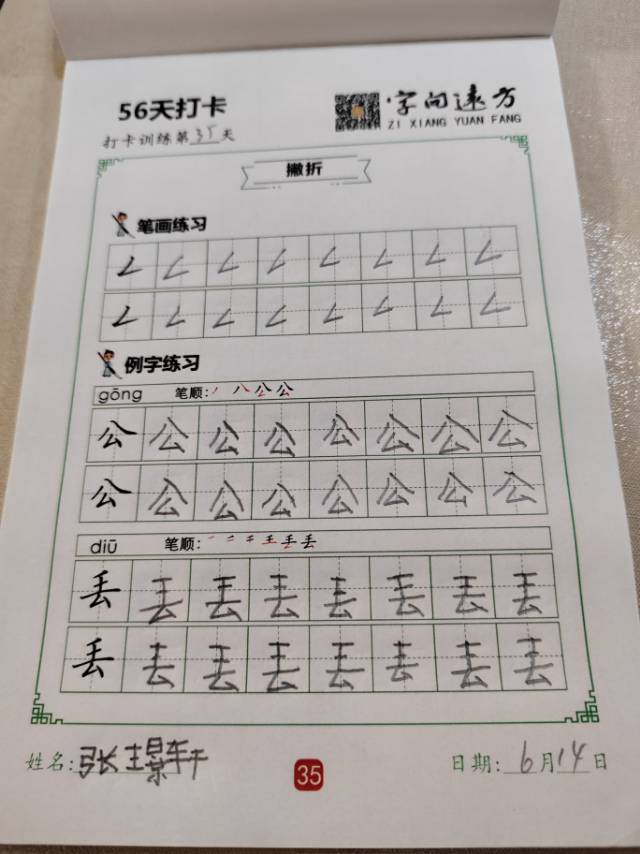 56天打卡
字向远方
ZI XIANG YUAN FANG
打卡训练第35天
撇折
笔画练习
例字练习
gōng 笔顺:
公公公公公公公公
公公公公公公公公
diū 笔顺:
丢丢丢丢丢丢丢丢
丢丢丢丢丢丢丢丢
姓名:张璟轩
35
日期:6月14日